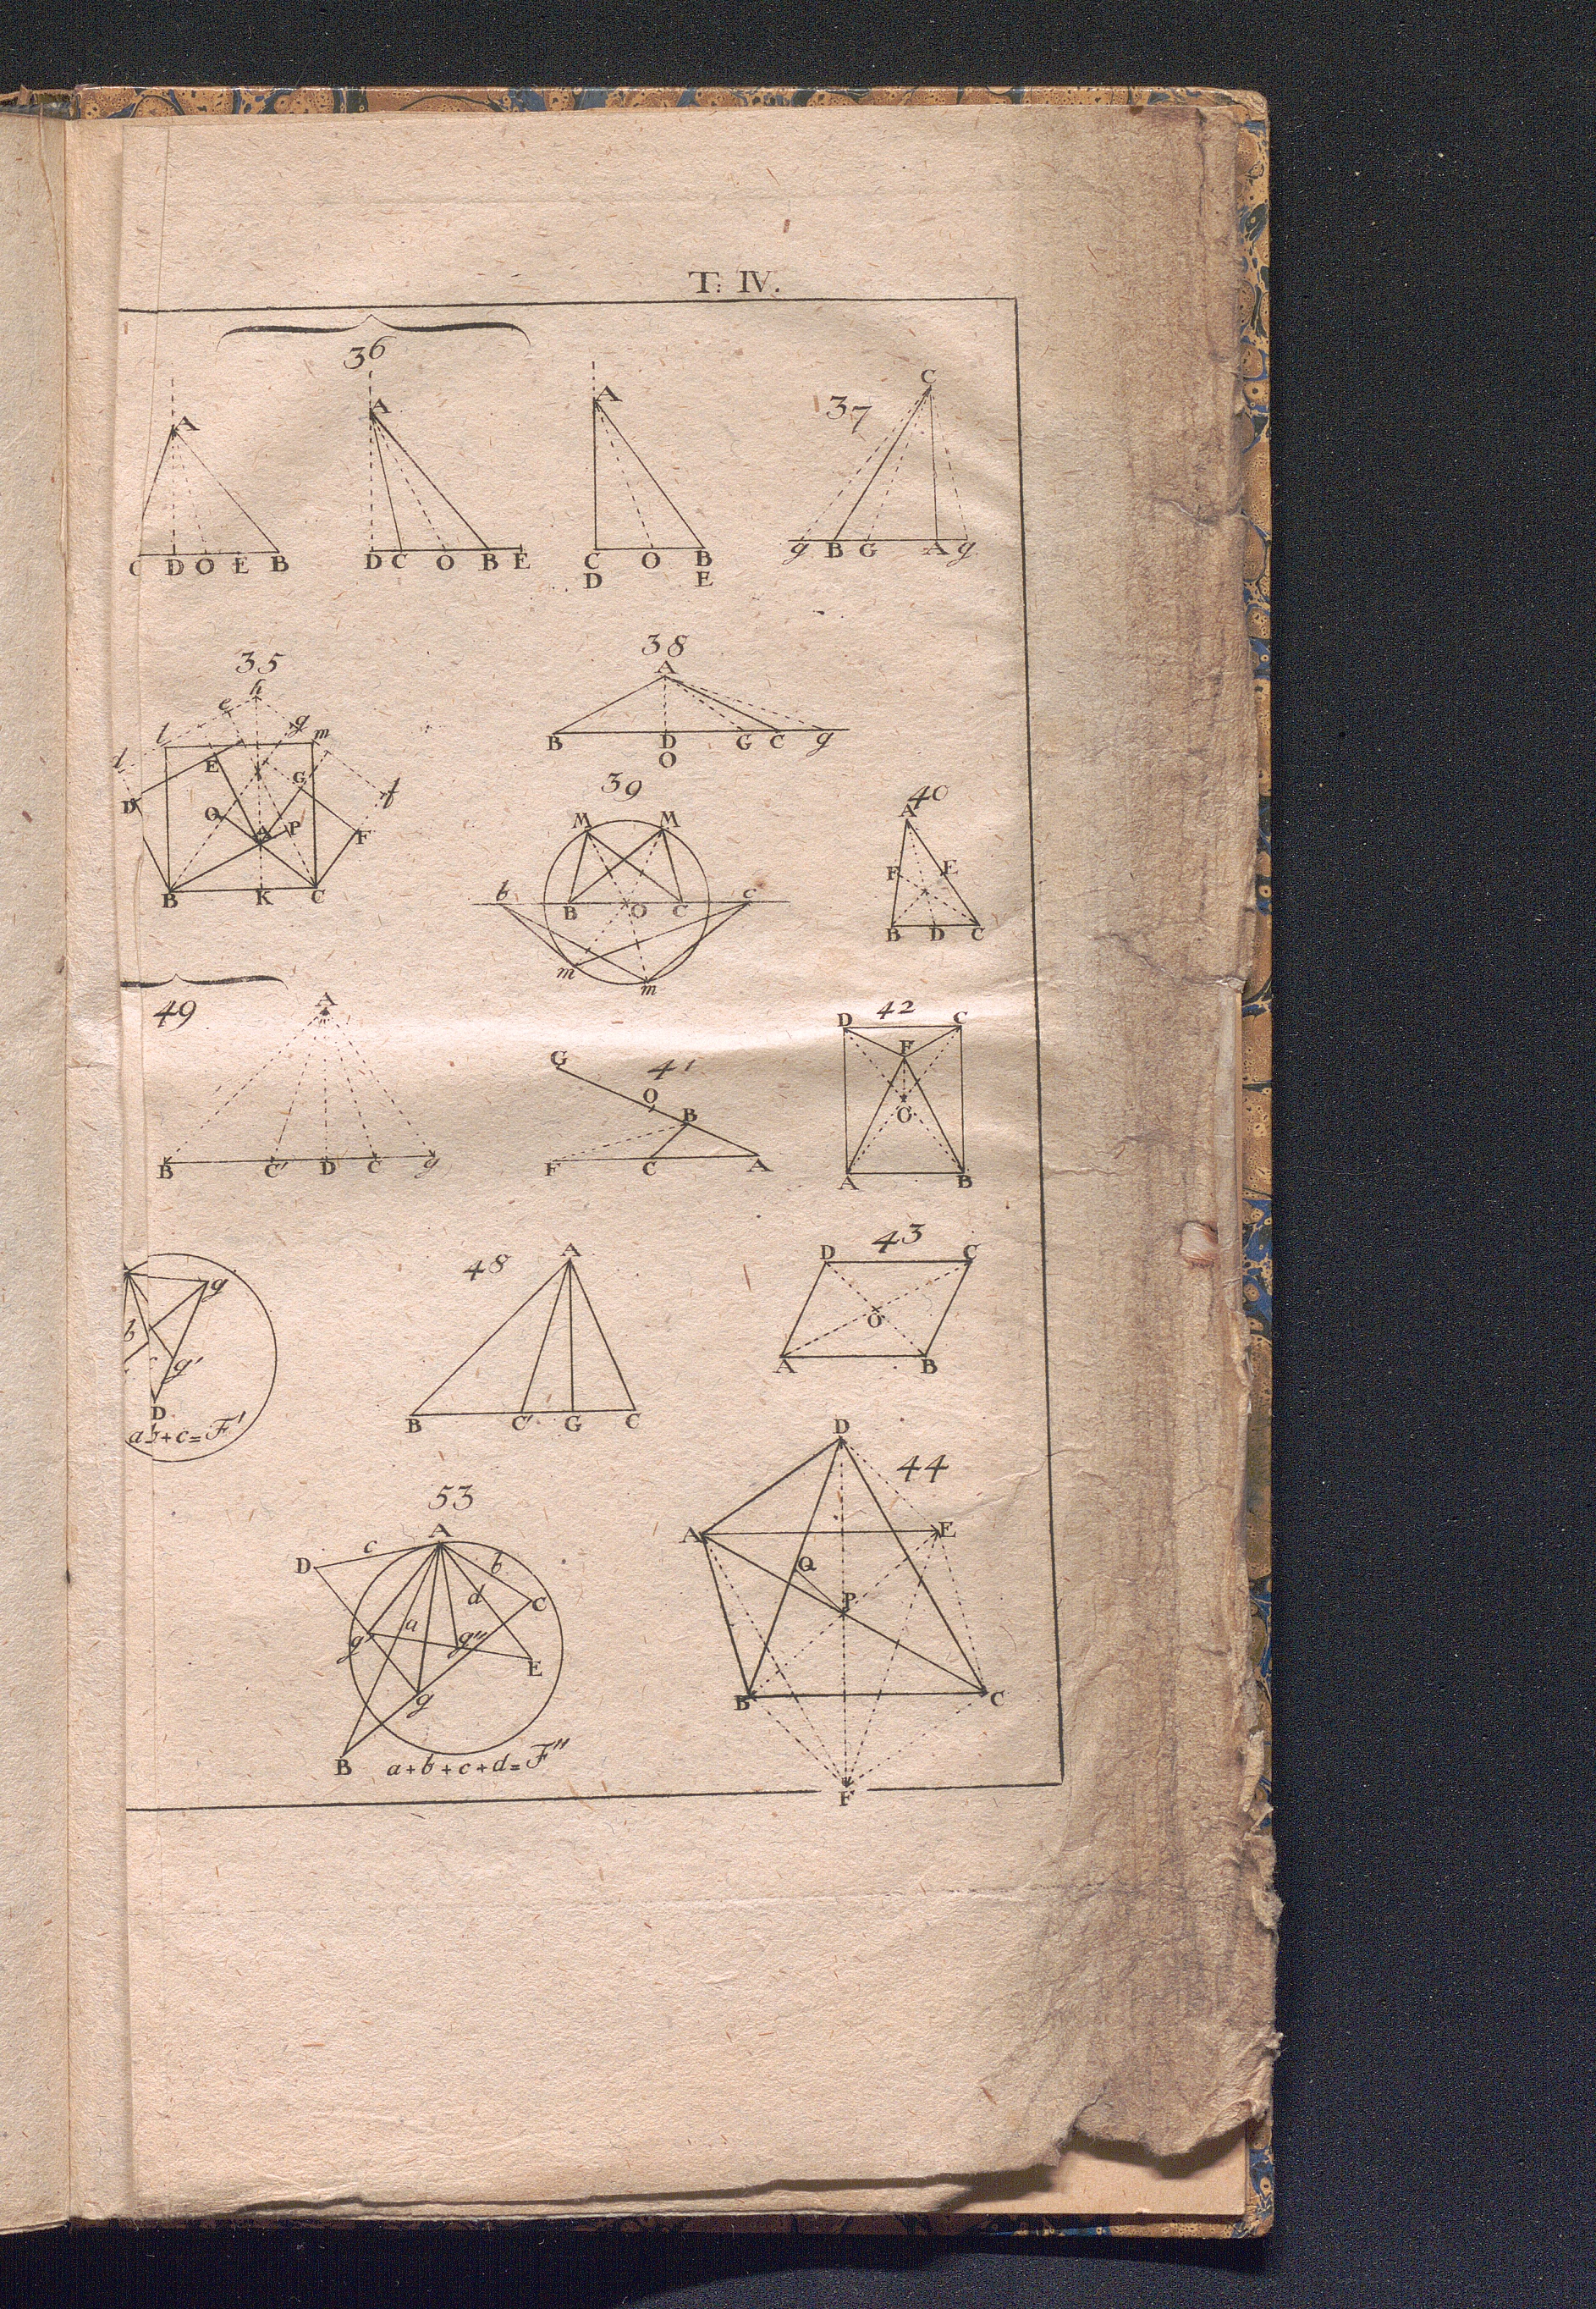 T: IV.
36
A
C D O E B
A
D C O B E
A
C O B
D E
37
C
g B G A g
35
h
e g
l m
d E G f
D Q A P F
B K C
38
A
B D G C g
O
39
M M
b B O C c
m m
40
A
F E
B D C
49
A
B C' D C g
41
G
O
B
F C A
42
D C
F
O
A B
g
b
c g'
D
ab+c=F'
48
A
B C' G C
43
D C
O
A B
53
A
D c b
d C
a
g' g''
E
g
B
a+b+c+d=F''
44
D
A E
Q
P
B C
F